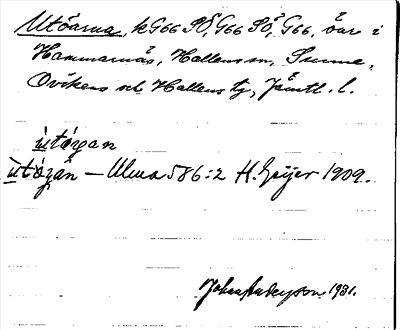 Utöarna, k G66 SÖ, G66 SÖ, G66, öar i
Hammarnäs, Hallens sn, Sunne,
Ovikens och Hallens tg, Jämtl. l.
ùtö́ɡan
ùtö́ɡan – Ulma 586:2 H. Geijer 1909.
Johan Anderson 1931.